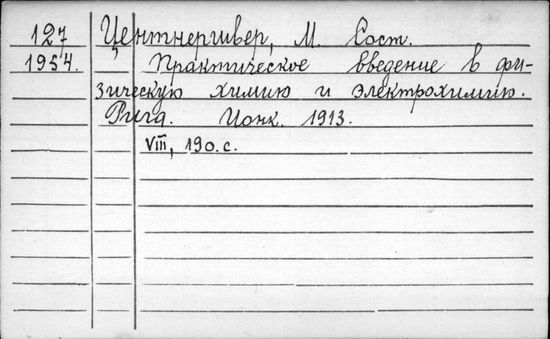 127 Центнергивер, М. Сост.
1954. Практическое введение в фи-
зическую химию и электрохимию.
Рига. Ионк. 1913.
VIII, 190.с.